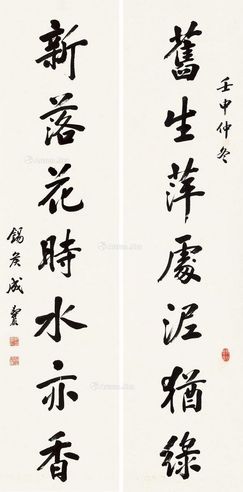 壬申仲冬
舊生萍處泥猶綠
新落花時水亦香
錫矦成勳